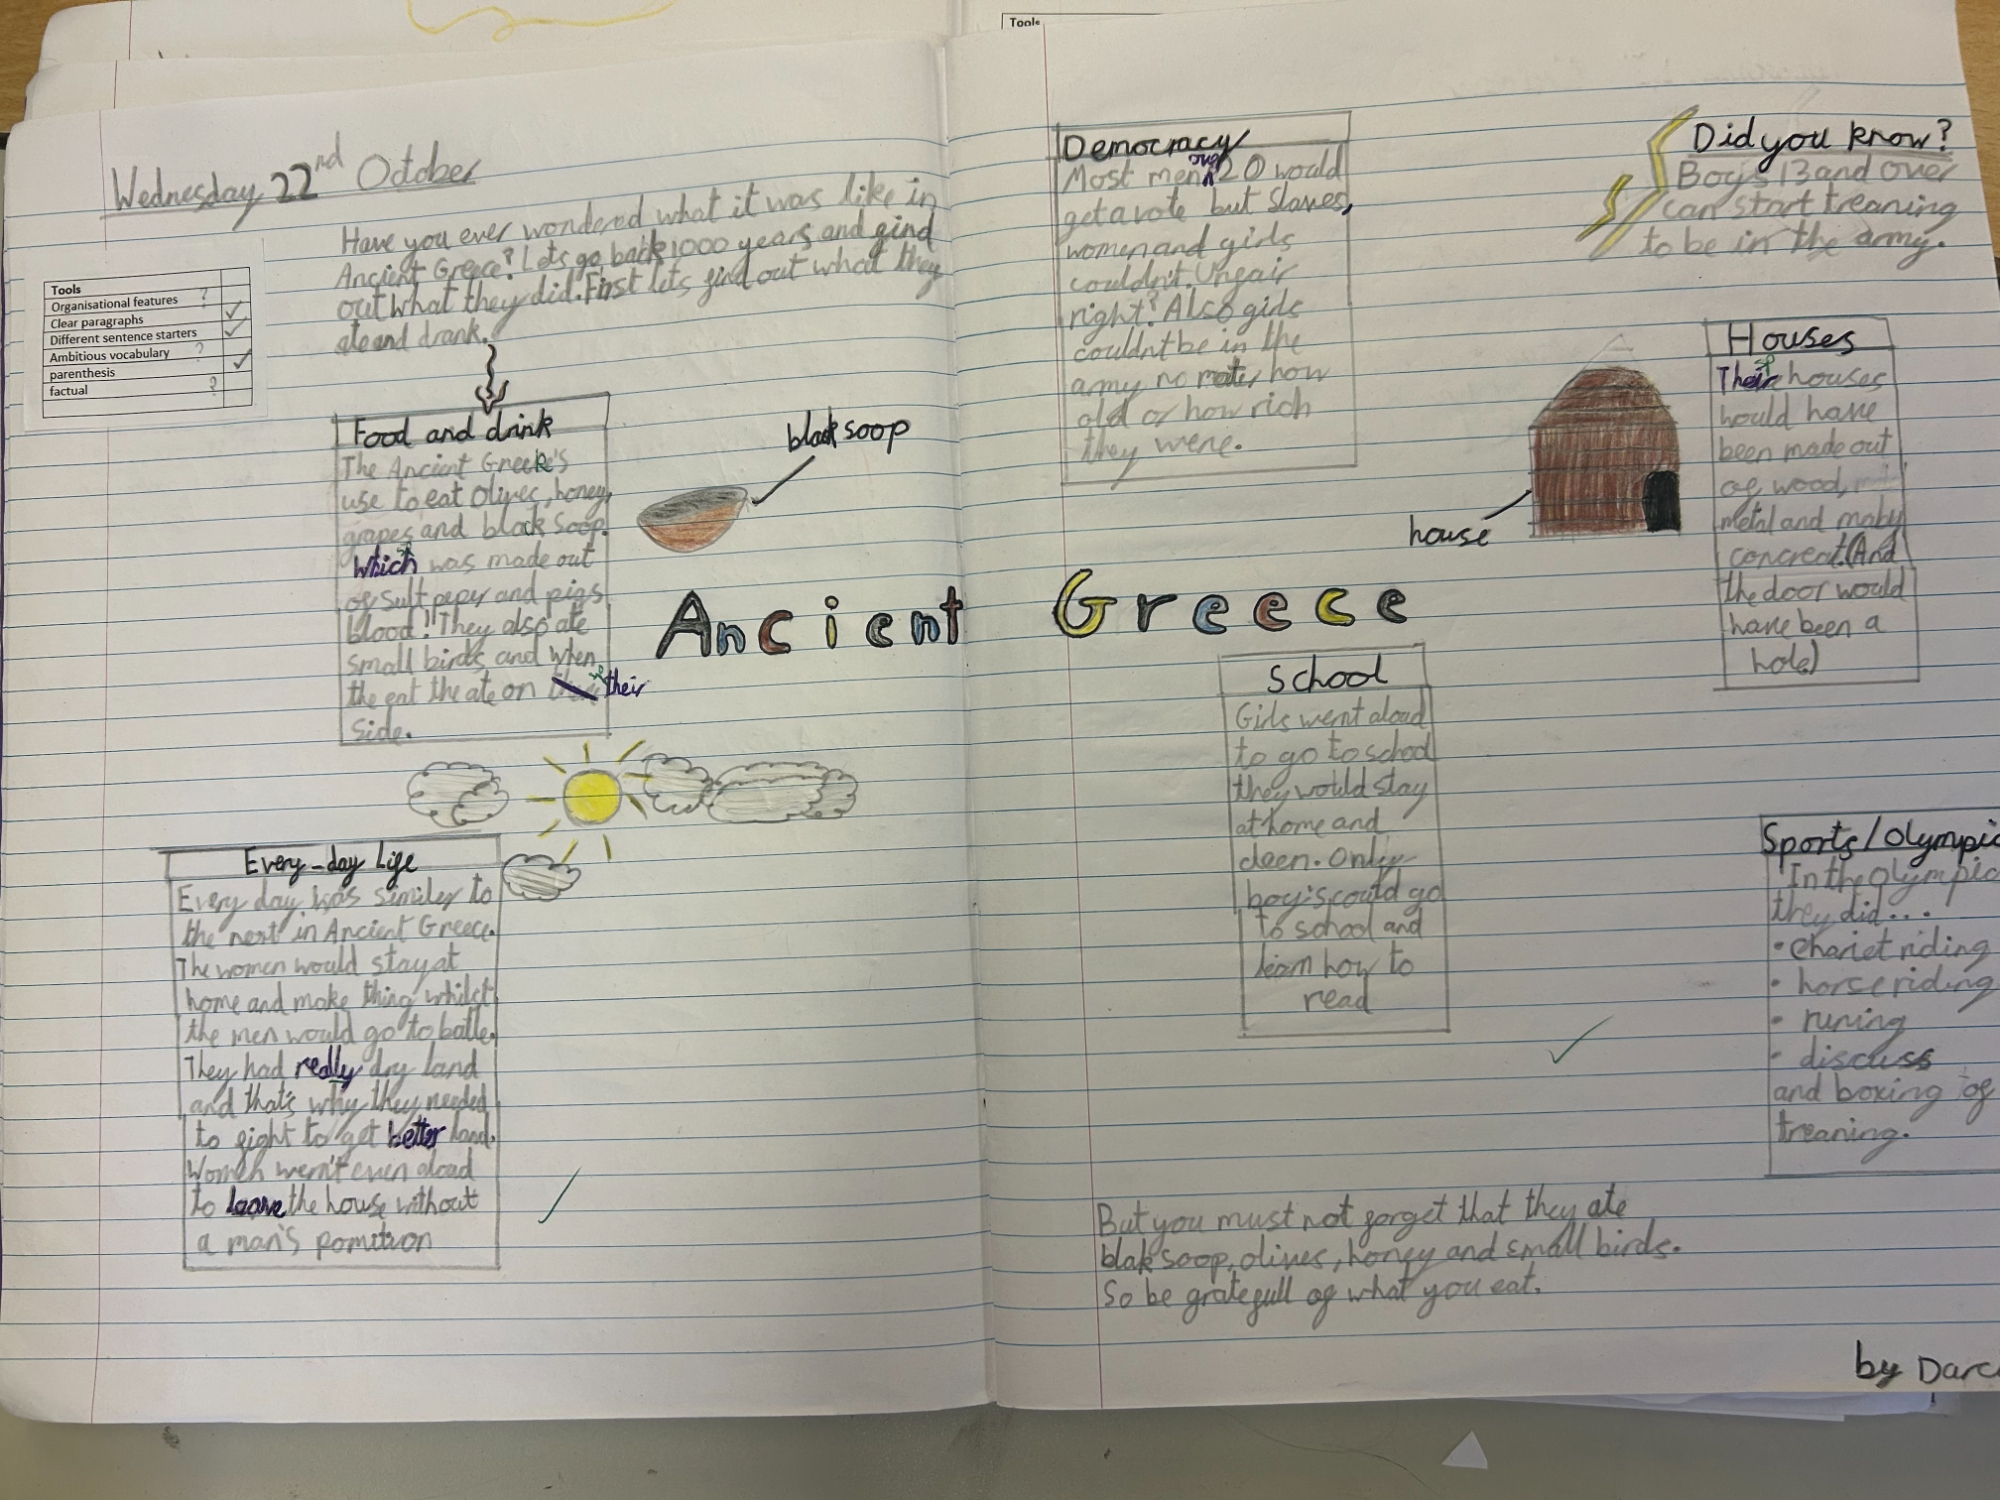 Tools
Wednesday 22nd October
Have you ever wondered what it was like in
Ancient Greece? Lets go back 1000 years and find
out what they did. First lets find out what they
ate and drank.
Tools
Organisational features ?
Clear paragraphs ✓
Different sentence starters ✓
Ambitious vocabulary ?
parenthesis ✓
factual ?
Food and drink
The Ancient Greek's
use to eat Olives, honey,
grapes and black soop.
Which was made out
of sult peper and pigs
blood!! They also ate
small birds and when
the eat the ate on their
side.
black soop
Ancient Greece
Every-day Life
Every day was similer to
the next in Ancient Greece.
The women would stay at
home and make thing whilst
the men would go to batle.
They had really dry land
and that's why they needed
to fight to get better land.
Women wern't even aload
to leave the house without
a man's pomition
Democracy
Most men over 20 would
get a vote but slaves,
women and girls
couldn't. Unfair
right? Also girls
couldnt be in the
army no mater how
old or how rich
they were.
Did you know?
Boys 13 and over
can start treaning
to be in the army.
Houses
Their houses
would have
been made out
of wood,
metal and maby
concreat. (And
the door would
have been a
hole)
house
School
Girls wernt aload
to go to school
they would stay
at home and
cleen. Only
boy's could go
to school and
learn how to
read
Sports/Olympic
In the Olympic
they did...
• chariet riding
• horse riding
• runing
• discuss
and boxing of
treaning.
But you must not forget that they ate
blak soop, olives, honey and small birds.
So be gratefull of what you eat.
by Darc